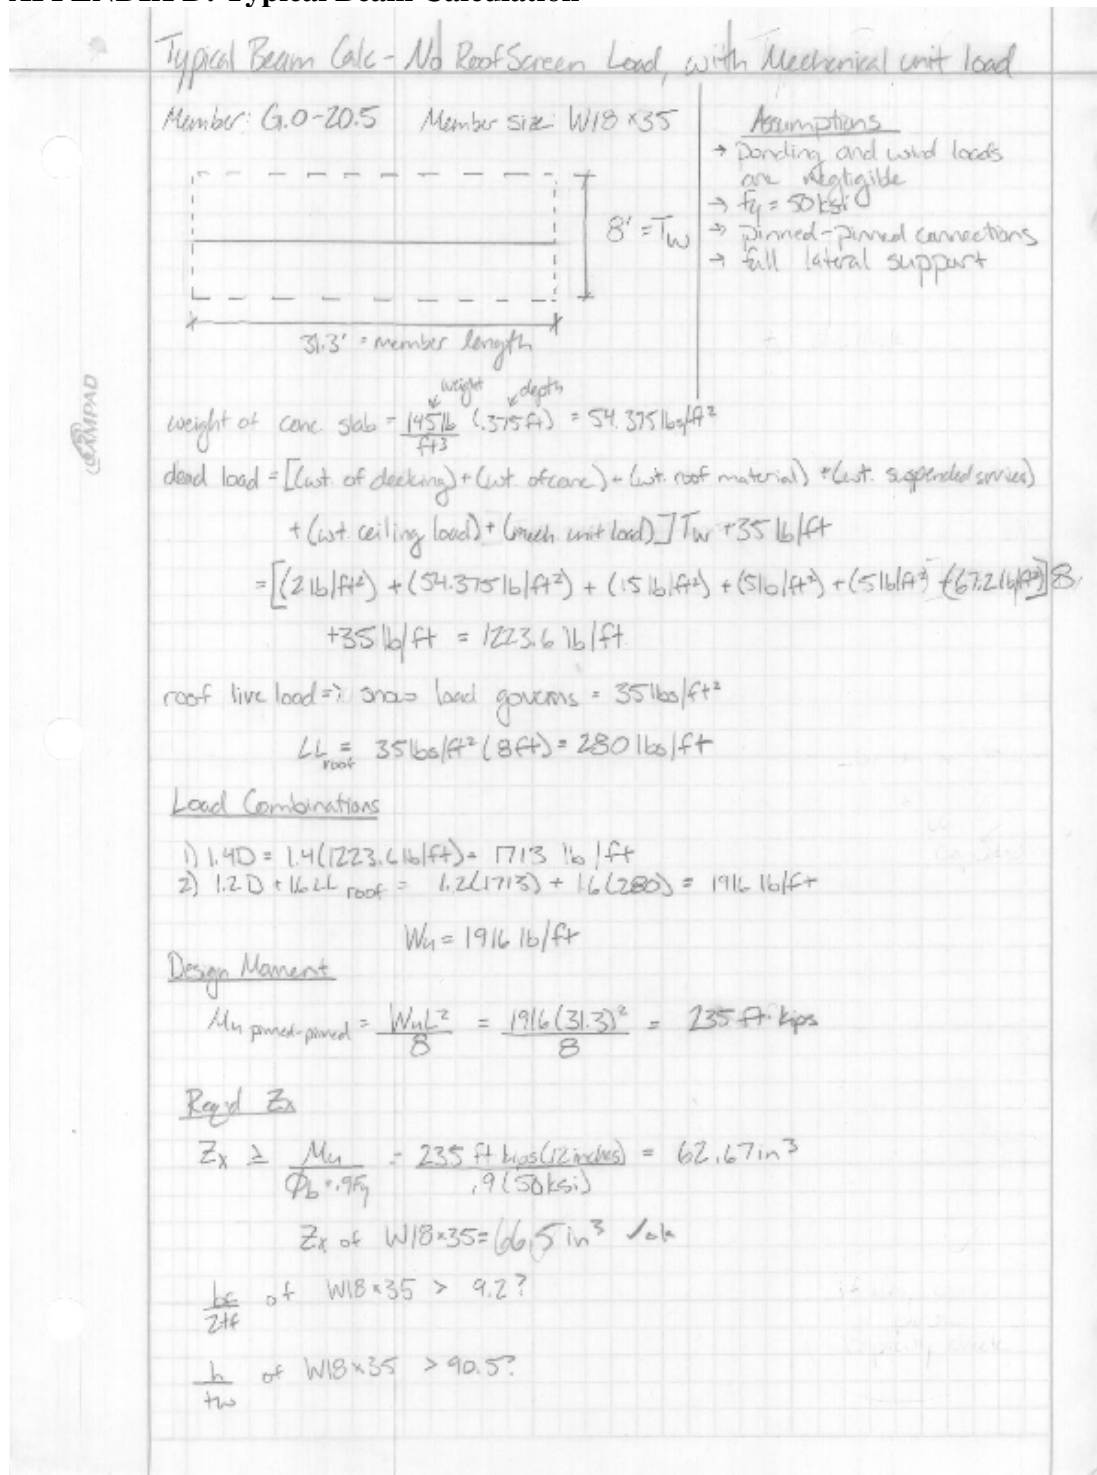 APPENDIX D: Typical Beam Calculation
Typical Beam Calc - No Roof Screen Load, with Mechanical unit load
Member: G.0-20.5 Member size: W18x35
Assumptions
→ Ponding and wind loads
are negligible
→ fy = 50 ksi
→ pinned-pinned connections
→ full lateral support
8' = Tw
31.3' = member length
AMPAD
weight depth
weight of conc slab = 145 lb/ft3 (.375 ft) = 54.375 lbs/ft²
dead load = [(wt. of decking) + (wt. of conc) + (wt. roof material) + (wt. suspended services)
+ (wt ceiling load) + (mech unit load)] Tw + 35 lb/ft
= [(2 lb/ft²) + (54.375 lb/ft²) + (15 lb/ft²) + (5 lb/ft²) + (5 lb/ft²) + (67.2 lb/ft²)] 8
+35 lb/ft = 1223.6 lb/ft
roof live load => snow load governs = 35 lbs/ft²
LL roof = 35 lbs/ft² (8ft) = 280 lbs/ft
Load Combinations
1) 1.4D = 1.4(1223.6 lb/ft) = 1713 lb/ft
2) 1.2D + 1.6LL roof = 1.2(1713) + 1.6(280) = 1916 lb/ft
Wu = 1916 lb/ft
Design Moment
Mu pinned-pinned = WuL²/8 = 1916(31.3)²/8 = 235 ft·kips
Req'd Zx
Zx ≥ Mu/Φb = .9Fy = 235 ft kips(12 inches)/.9(50ksi) = 62.67 in³
Zx of W18x35 = 66.5 in³ ✓ok
bf/2tf of W18x35 > 9.2?
h/tw of W18x35 > 90.5?